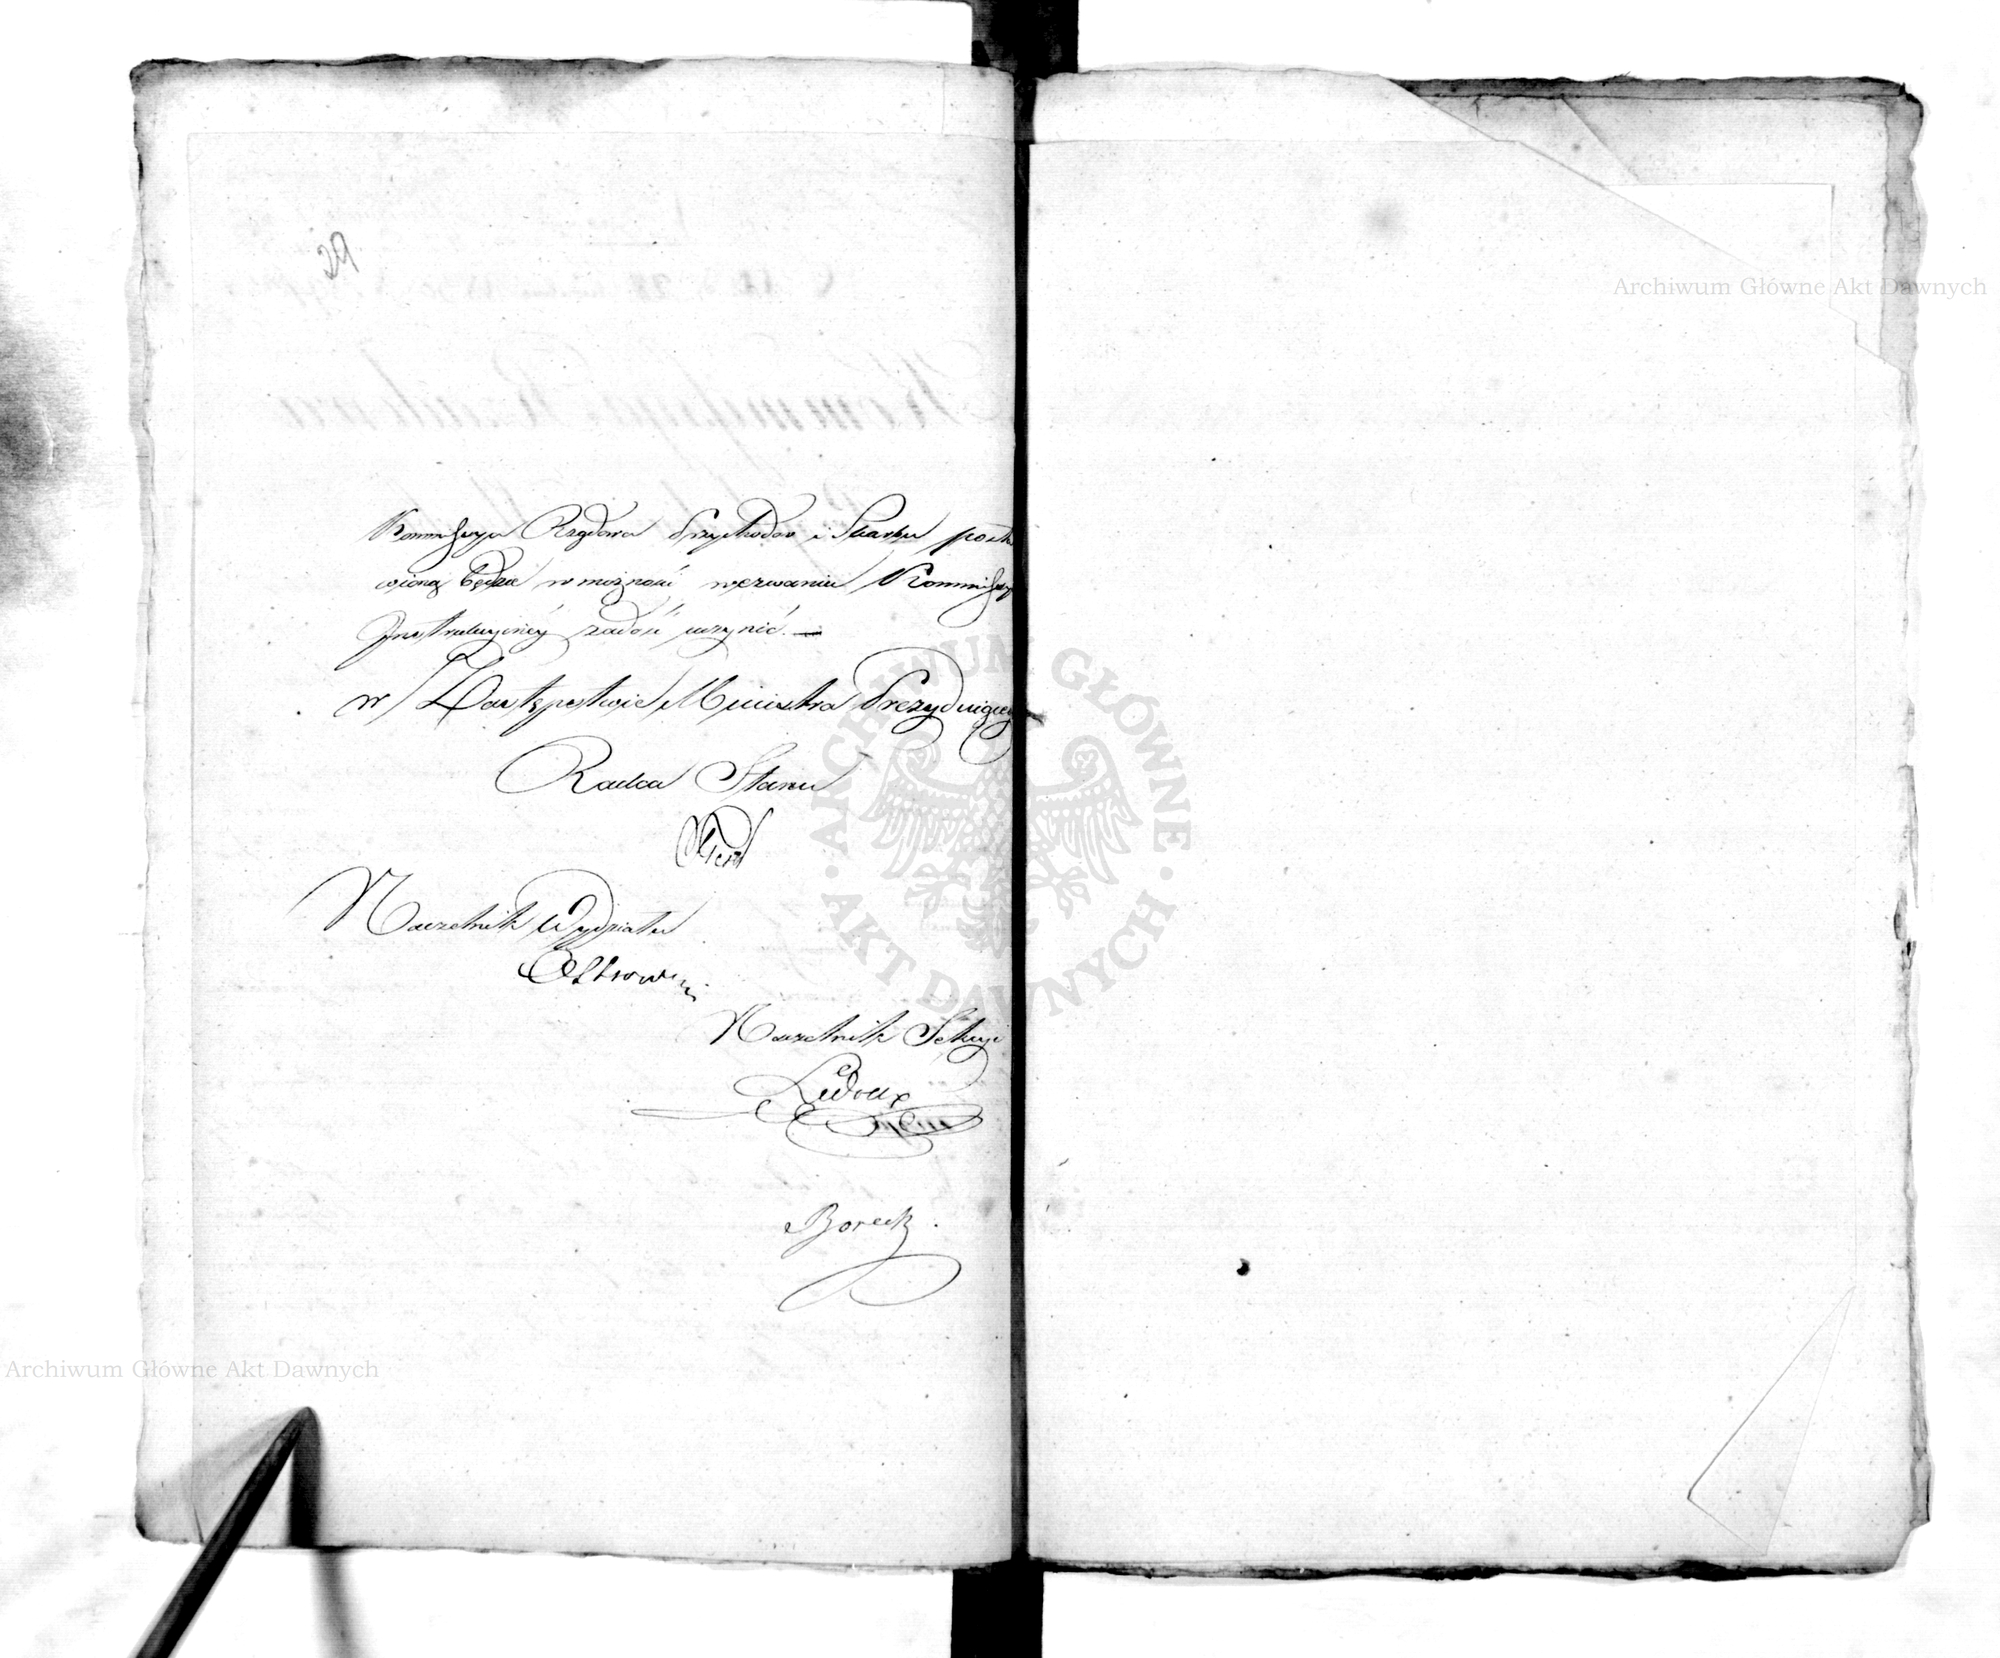 29
Kommissya Rządowa Przychodów i Skarbu posta
wioną będzie w możność wezwaniu Kommissyi
Instrukcyinéy zadość uczynić. —
w Zastępstwie Ministra Prezydującego
Radca Stanu
Naczelnik Wydziału
Ostrowski
Naczelnik Sekcyi
Ledoux
Borecki
Archiwum Główne Akt Dawnych
Archiwum Główne Akt Dawnych
ARCHIWUM GŁÓWNE · AKT DAWNYCH ·